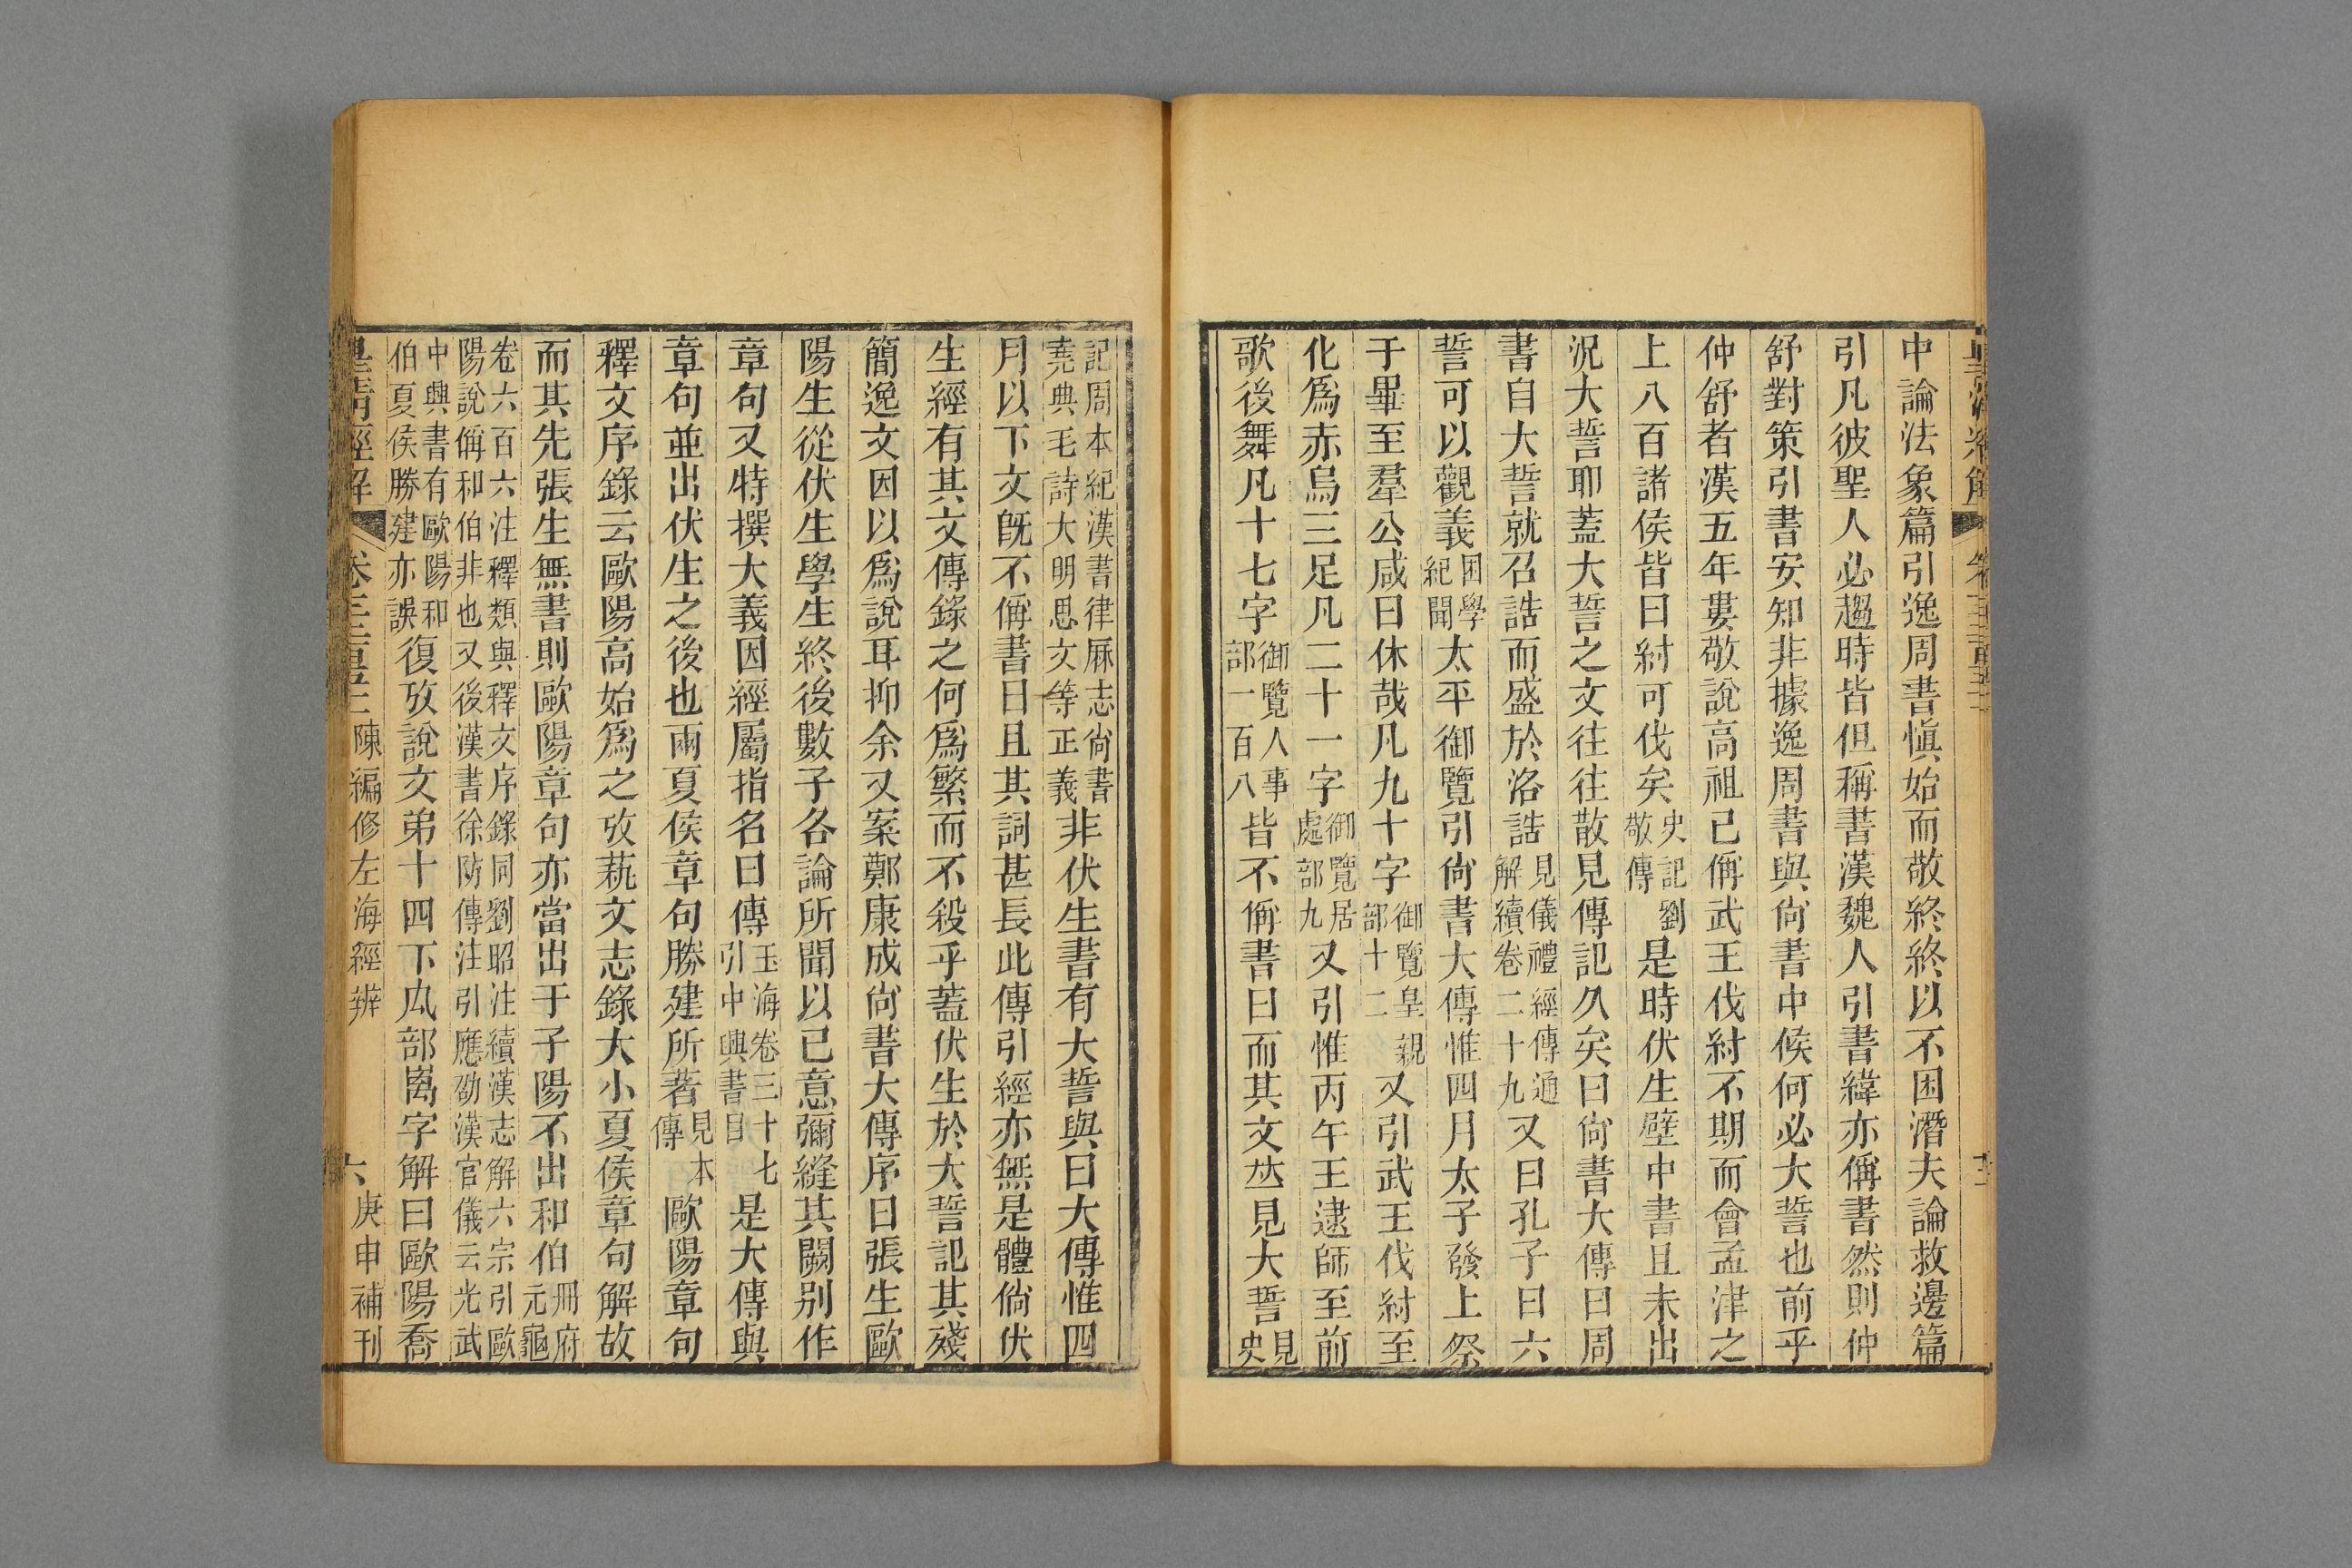 中論法象篇引逸周書愼始而敬終終以不困潛夫論救邊篇
引凡彼聖人必趨時皆但稱書漢魏人引書緯亦偁書然則仲
舒對策引書安知非據逸周書與尙書中候何必大誓也前乎
仲舒者漢五年婁敬說高祖已偁武王伐紂不期而會孟津之
上八百諸侯皆曰紂可伐矣史記劉敬傳是時伏生壁中書且未出
況大誓耶蓋大誓之文往往散見傳記久矣曰尙書大傳曰周
書自大誓就召誥而盛於洛誥見儀禮經傳通解續卷二十九又曰孔子曰六
誓可以觀義困學紀聞太平御覽引尙書大傳惟四月太子發上祭
于畢至羣公咸曰休哉凡九十字御覽皇親部十二又引武王伐紂至
化爲赤烏三足凡二十一字御覽居處部九又引惟丙午王逮師至前
歌後舞凡十七字御覽人事部一百八皆不偁書曰而其文𠀤見大誓見史
記周本紀漢書律厤志尙書堯典毛詩大明思文等正義非伏生書有大誓與曰大傳惟四
月以下文旣不偁書曰且其詞甚長此傳引經亦無是體倘伏
生經有其文傳錄之何爲繁而不殺乎蓋伏生於大誓記其殘
簡逸文因以爲說耳抑余又案鄭康成尙書大傳序曰張生歐
陽生從伏生學生終後數子各論所聞以已意彌縫其闕別作
章句又特撰大義因經屬指名曰傳玉海卷三十七引中興書目是大傳與
章句並出伏生之後也兩夏侯章句勝建所著見本傳歐陽章句
釋文序錄云歐陽高始爲之攷蓺文志錄大小夏侯章句解故
而其先張生無書則歐陽章句亦當出于子陽不出和伯冊府元龜
卷六百六注釋類與釋文序錄同劉昭注續漢志解六宗引歐陽說偁和伯非也又後漢書徐防傳注引應劭漢官儀云光武
中興書有歐陽和伯夏侯勝建亦誤復攷說文弟十四下厹部离字解曰歐陽喬
皇淸經解 卷 陳編修左海經辨 六 庚申補刊